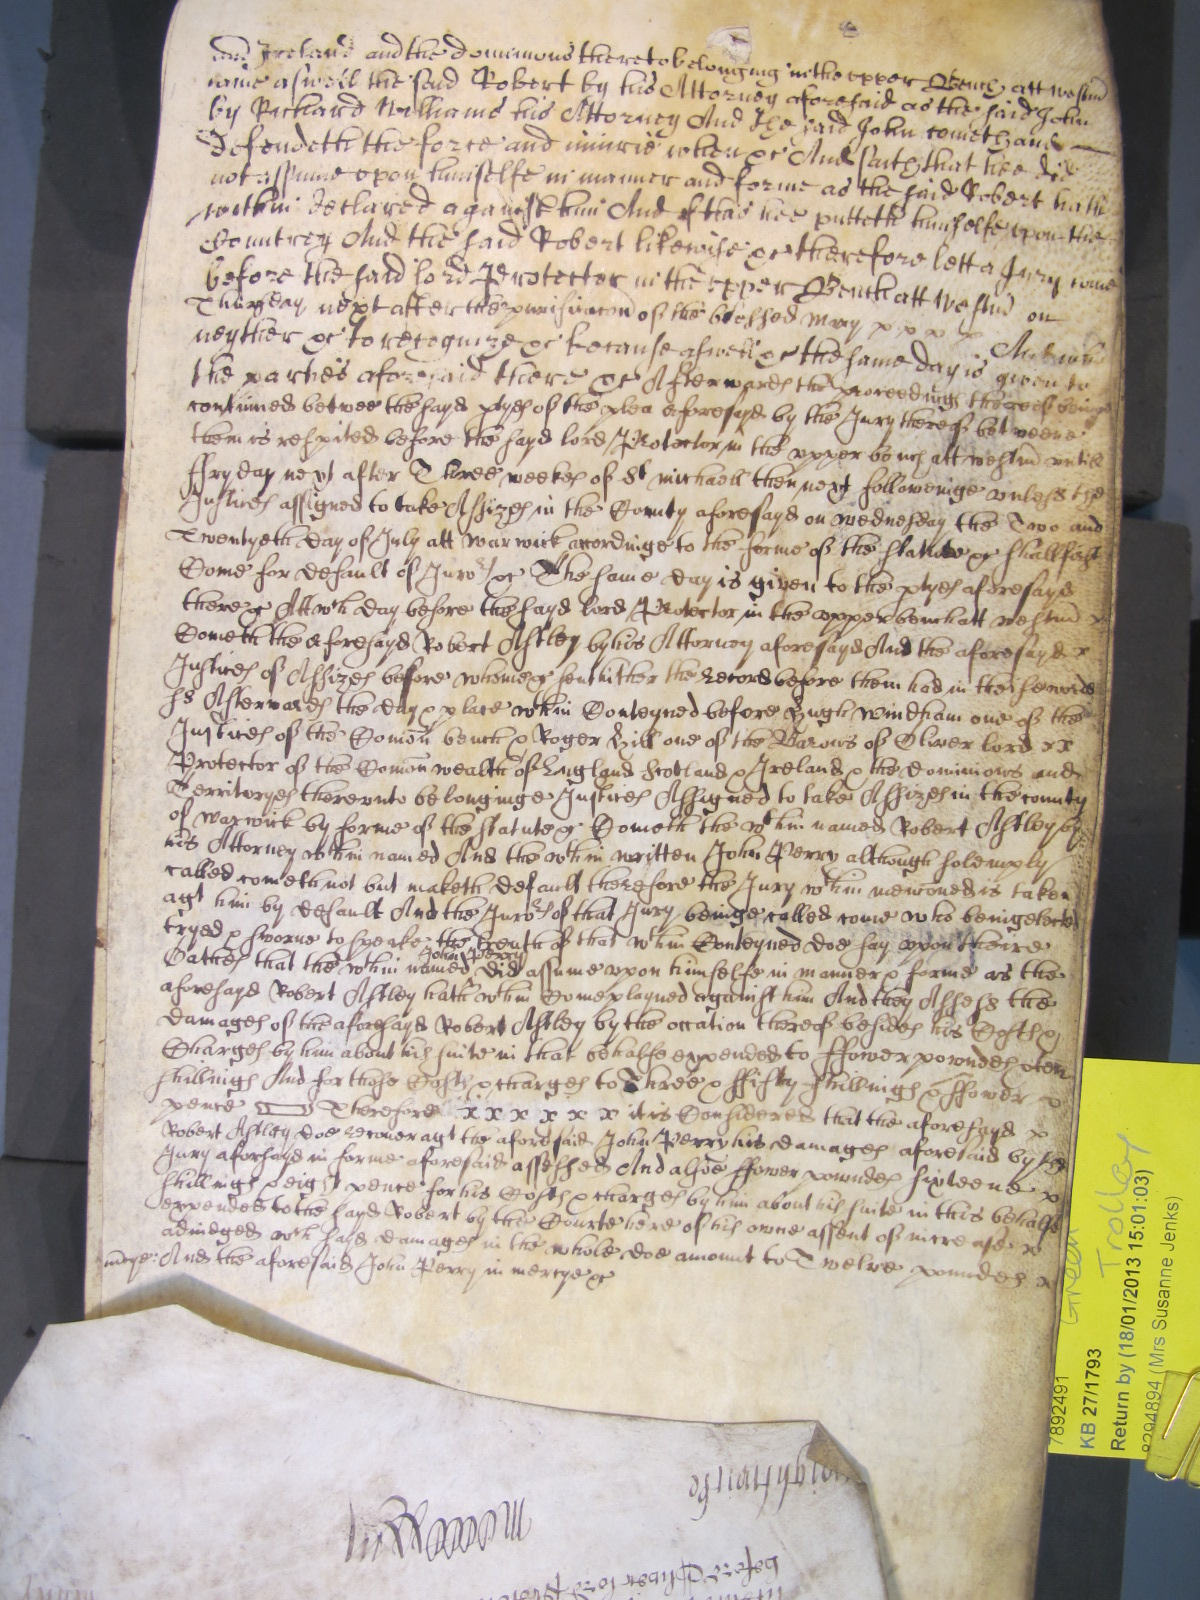 and Ireland and the dominions thereto belonging in the upper Bench att Westm
came aswell the said Robert by his Attorney aforesaid as the said John
by Richard Williams his Attorney And the said John cometh and
defendeth the force and iniurie when &c And saith that hee did
not assume upon himselfe in manner and forme as the said Robert hath
within declared against him And of this hee putteth himselfe upon the
Countrey And the said Robert likewise &c therefore lett a Jury come
before the said lord Protector in the upper Bench att Westm on
Thursday next after the purificacon of the blessed Mary x x x x x
neyther &c to recognize &c because aswell &c the same day is given to
the parties aforesaid there &c Afterwards the proceedings thereof beinge
continued betwee the sayd ptyes of the plea aforesayd by the Jury thereof betweene
them is respited before the sayd lord Protector in the upper bench att westm untill
ffryday next after Three weekes of St Michaell then next followeinge unless the
Justices assigned to take Assizes in the County aforesayd on wednesday the Two and
Twentyeth day of July att Warwick accordinge to the forme of the statute &c shall first
Come for default of Juro:rs &c The same day is given to the ptyes aforesayd
there &c Att wch day before the sayd lord Protector in the upper bench att westm x
Cometh the aforesayd Robert Astley by his Attorney aforesayd And the aforesayd x
Justices of Assizes before whome &c sent hither the Record before them had in these words
ss Afterwards the day & place wthin Conteyned before Hugh Windham one of the
Justices of the Comon bench & Roger Hill one of the Barons of Oliver lord x x
Protector of the Comon wealth of England Scotland & Ireland & the dominions and
Territoryes thereunto belonginge Justices Assigned to take Assizes in the County
of Warwick by forme of the statute &c Cometh the wthin named Robert Astley by
his Attorney wthin named And the wthin written John Perry although solemply
called cometh not but maketh default therefore the Jury wthin mencioned is taken
agt him by default And the Juro:rs of that Jury beinge called come who beinge elected
tryed & sworne to speake the treuth of that wthin Conteyned doe say uppon theire
John Perry
Oathes that the wthin named did assume upon himselfe in manner & forme as the
aforesayd Robert Astley hath wthin Complayned against him And they Assess the
damages of the aforesayd Robert Astley by the occation thereof besides his Costs &
Charges by him about his suite in that behalfe expended to ffower powndes & ten
shillings And for those Costs & charges to Three & ffifty shillings & ffower x
pence Therefore x x x x x x it is Considered that the aforesayd x
Robert Astley doe recover agt the aforesaid John Perry his damages aforesaid by the
Jury aforsayd in forme aforesaid assessed And alsoe ffower powndes sixteene x
shillings & eight pence for his Costs & charges by him about his suite in this behalfe
expended to the sayd Robert by the Courte here of his owne assent of increase x
adiudged wch said damages in the whole doe amount to Twelve powndes x
mcye: And the aforesaid John Perry in mercye &c
7892491
Green
Trolley
KB 27/1793
Return by (18/01/2013 15:01:03)
8294894 (Mrs Susanne Jenks)